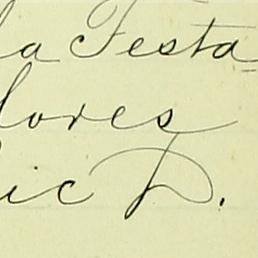 la Festa
lores
ic D.